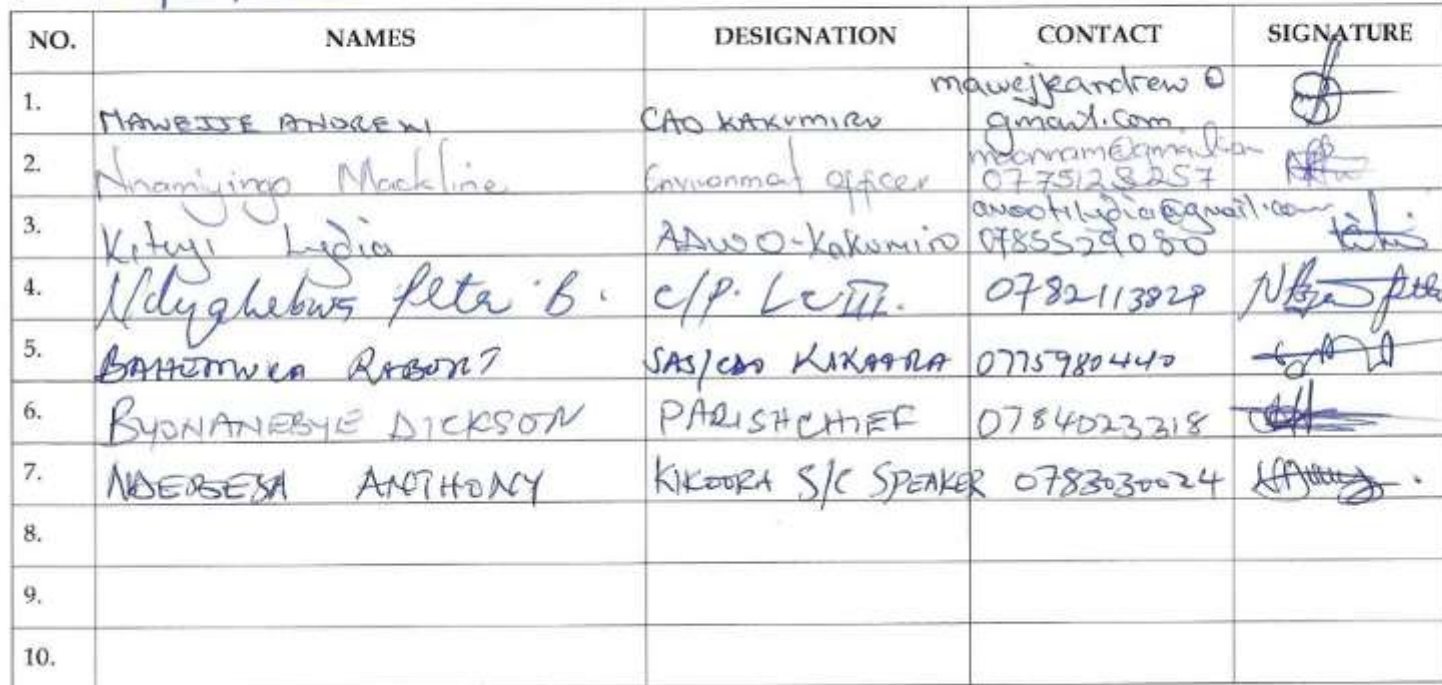 NO. NAMES DESIGNATION CONTACT SIGNATURE
1. MAWEJJE ANDREW CAO KAKUMIRO mawejjeandrew@
gmail.com
2. Nnamiyingo Mackline Environment officer
0775128257
3. Kituyi Lydia ADWO-Kakumiro 0785529080
4. Peter B. C/P. LC III. 0782113829
5. BAHEMUKA ROBERT SAS/CAO KIKOORA 0775980440
6. BYONANEBYE DICKSON PARISH CHIEF 0784023318
7. NDEBESA ANTHONY KIKOORA S/C SPEAKER 0783030024
8.
9.
10.